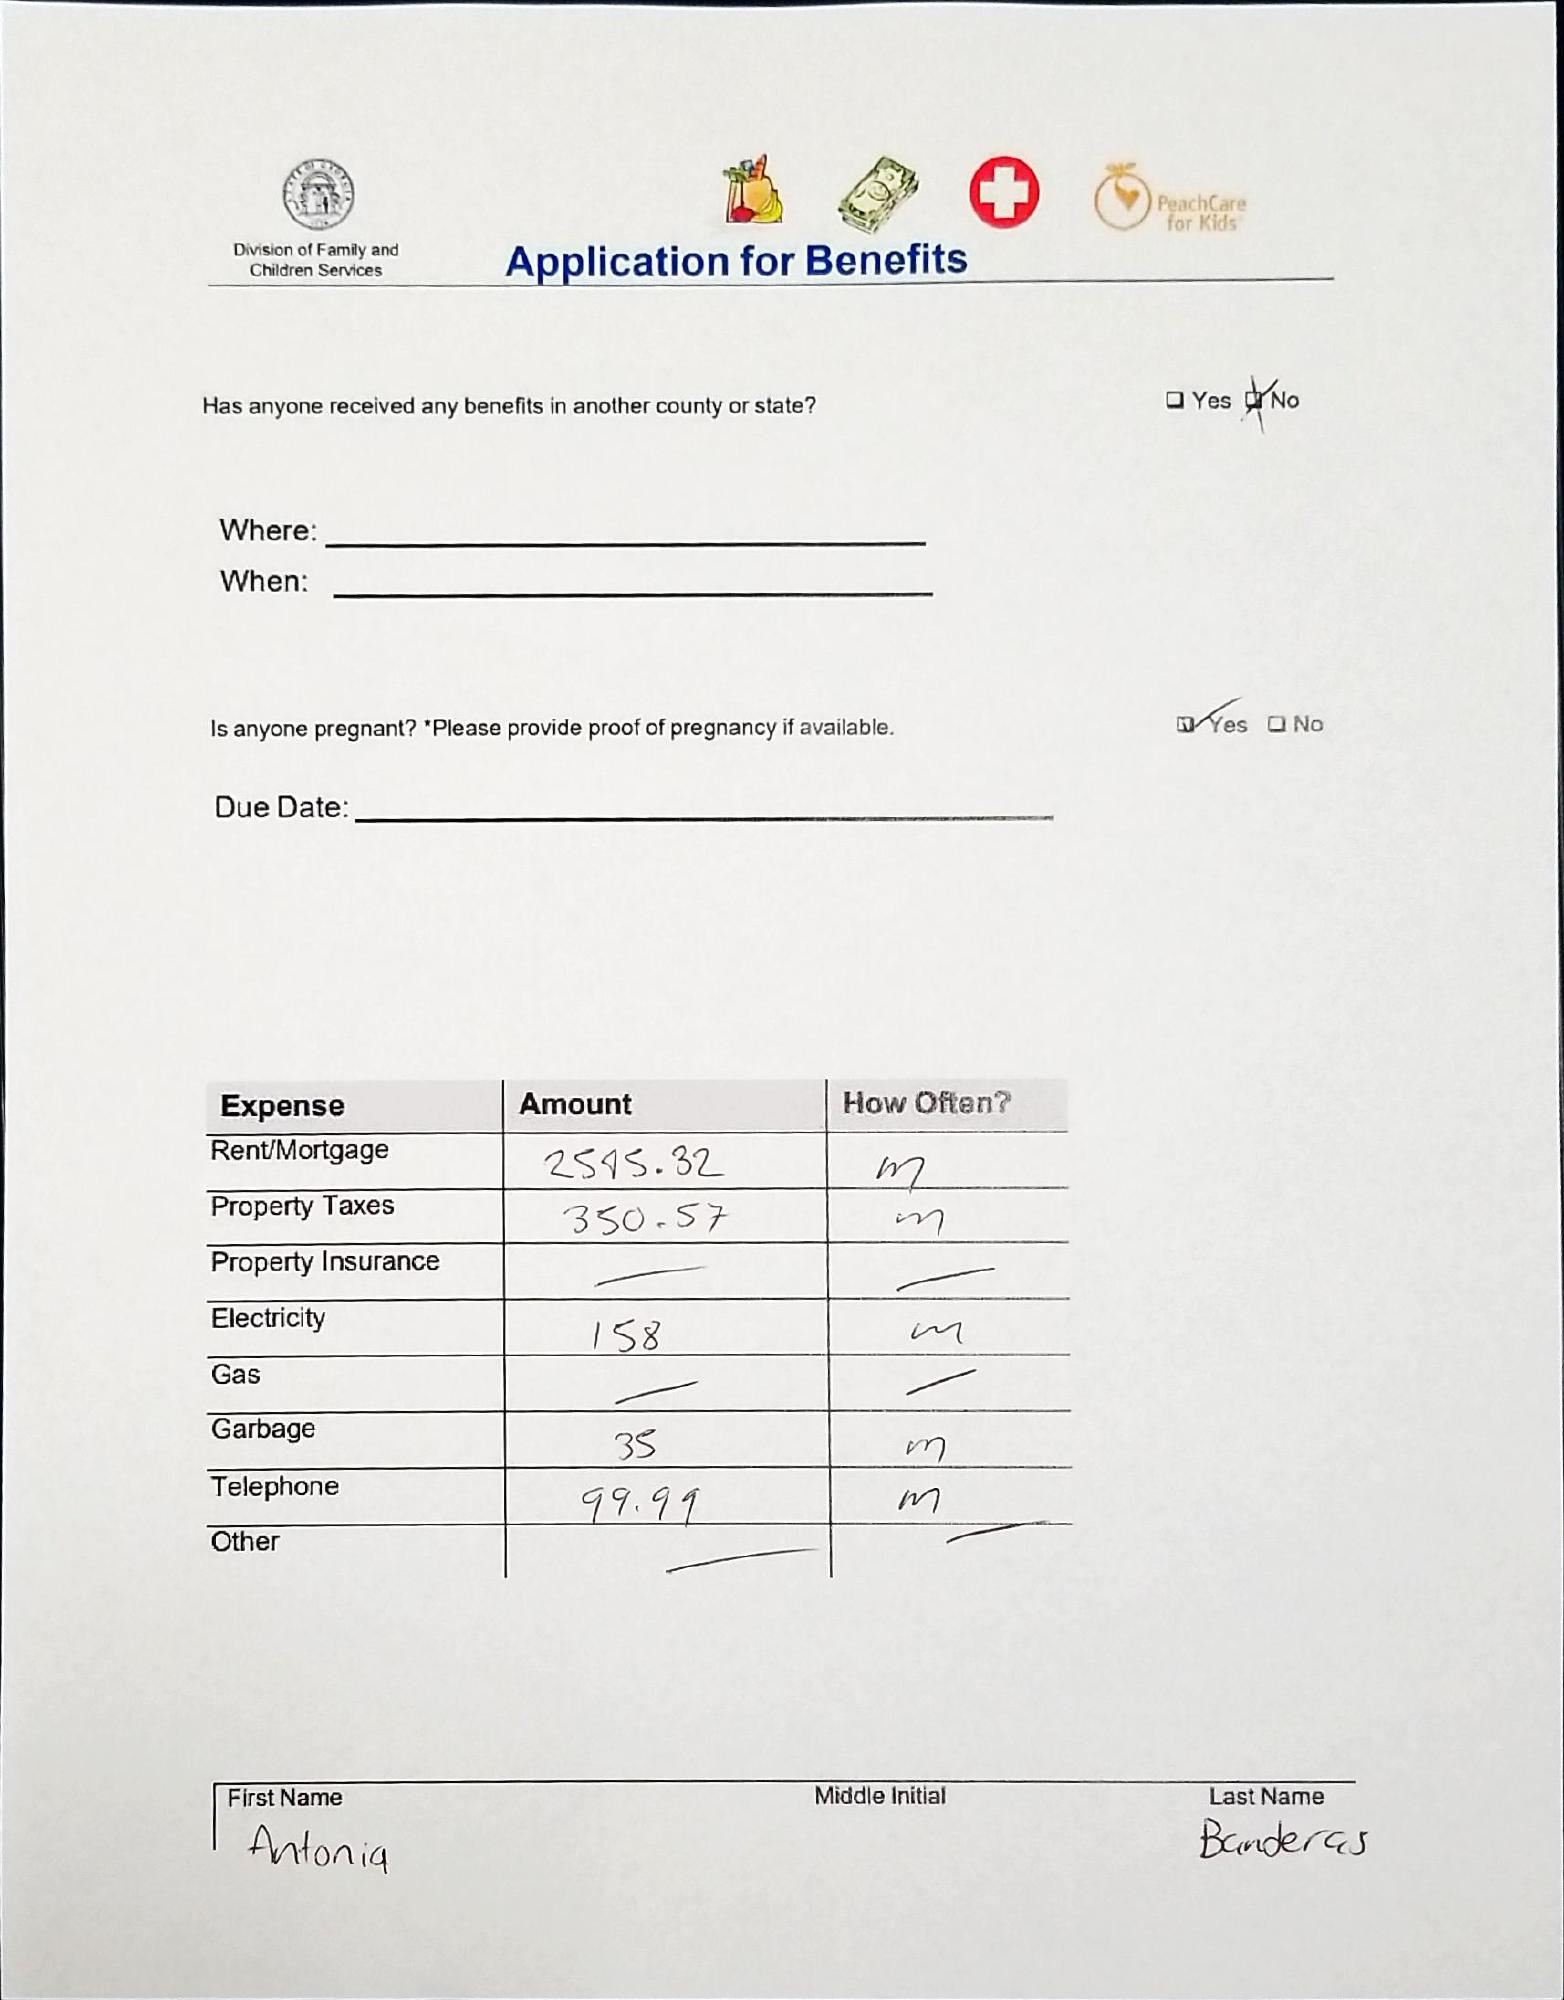 Division of Family and
Children Services
PeachCare
for Kids
Application for Benefits
Has anyone received any benefits in another county or state? ☐ Yes ☒ No
Where:
When:
Is anyone pregnant? *Please provide proof of pregnancy if available. ☑ Yes ☐ No
Due Date:
Expense Amount How Often?
Rent/Mortgage 2595.32 m
Property Taxes 350.57 m
Property Insurance — —
Electricity 158 m
Gas — —
Garbage 35 m
Telephone 99.99 m
Other — —
First Name Middle Initial Last Name
Antonia Banderas